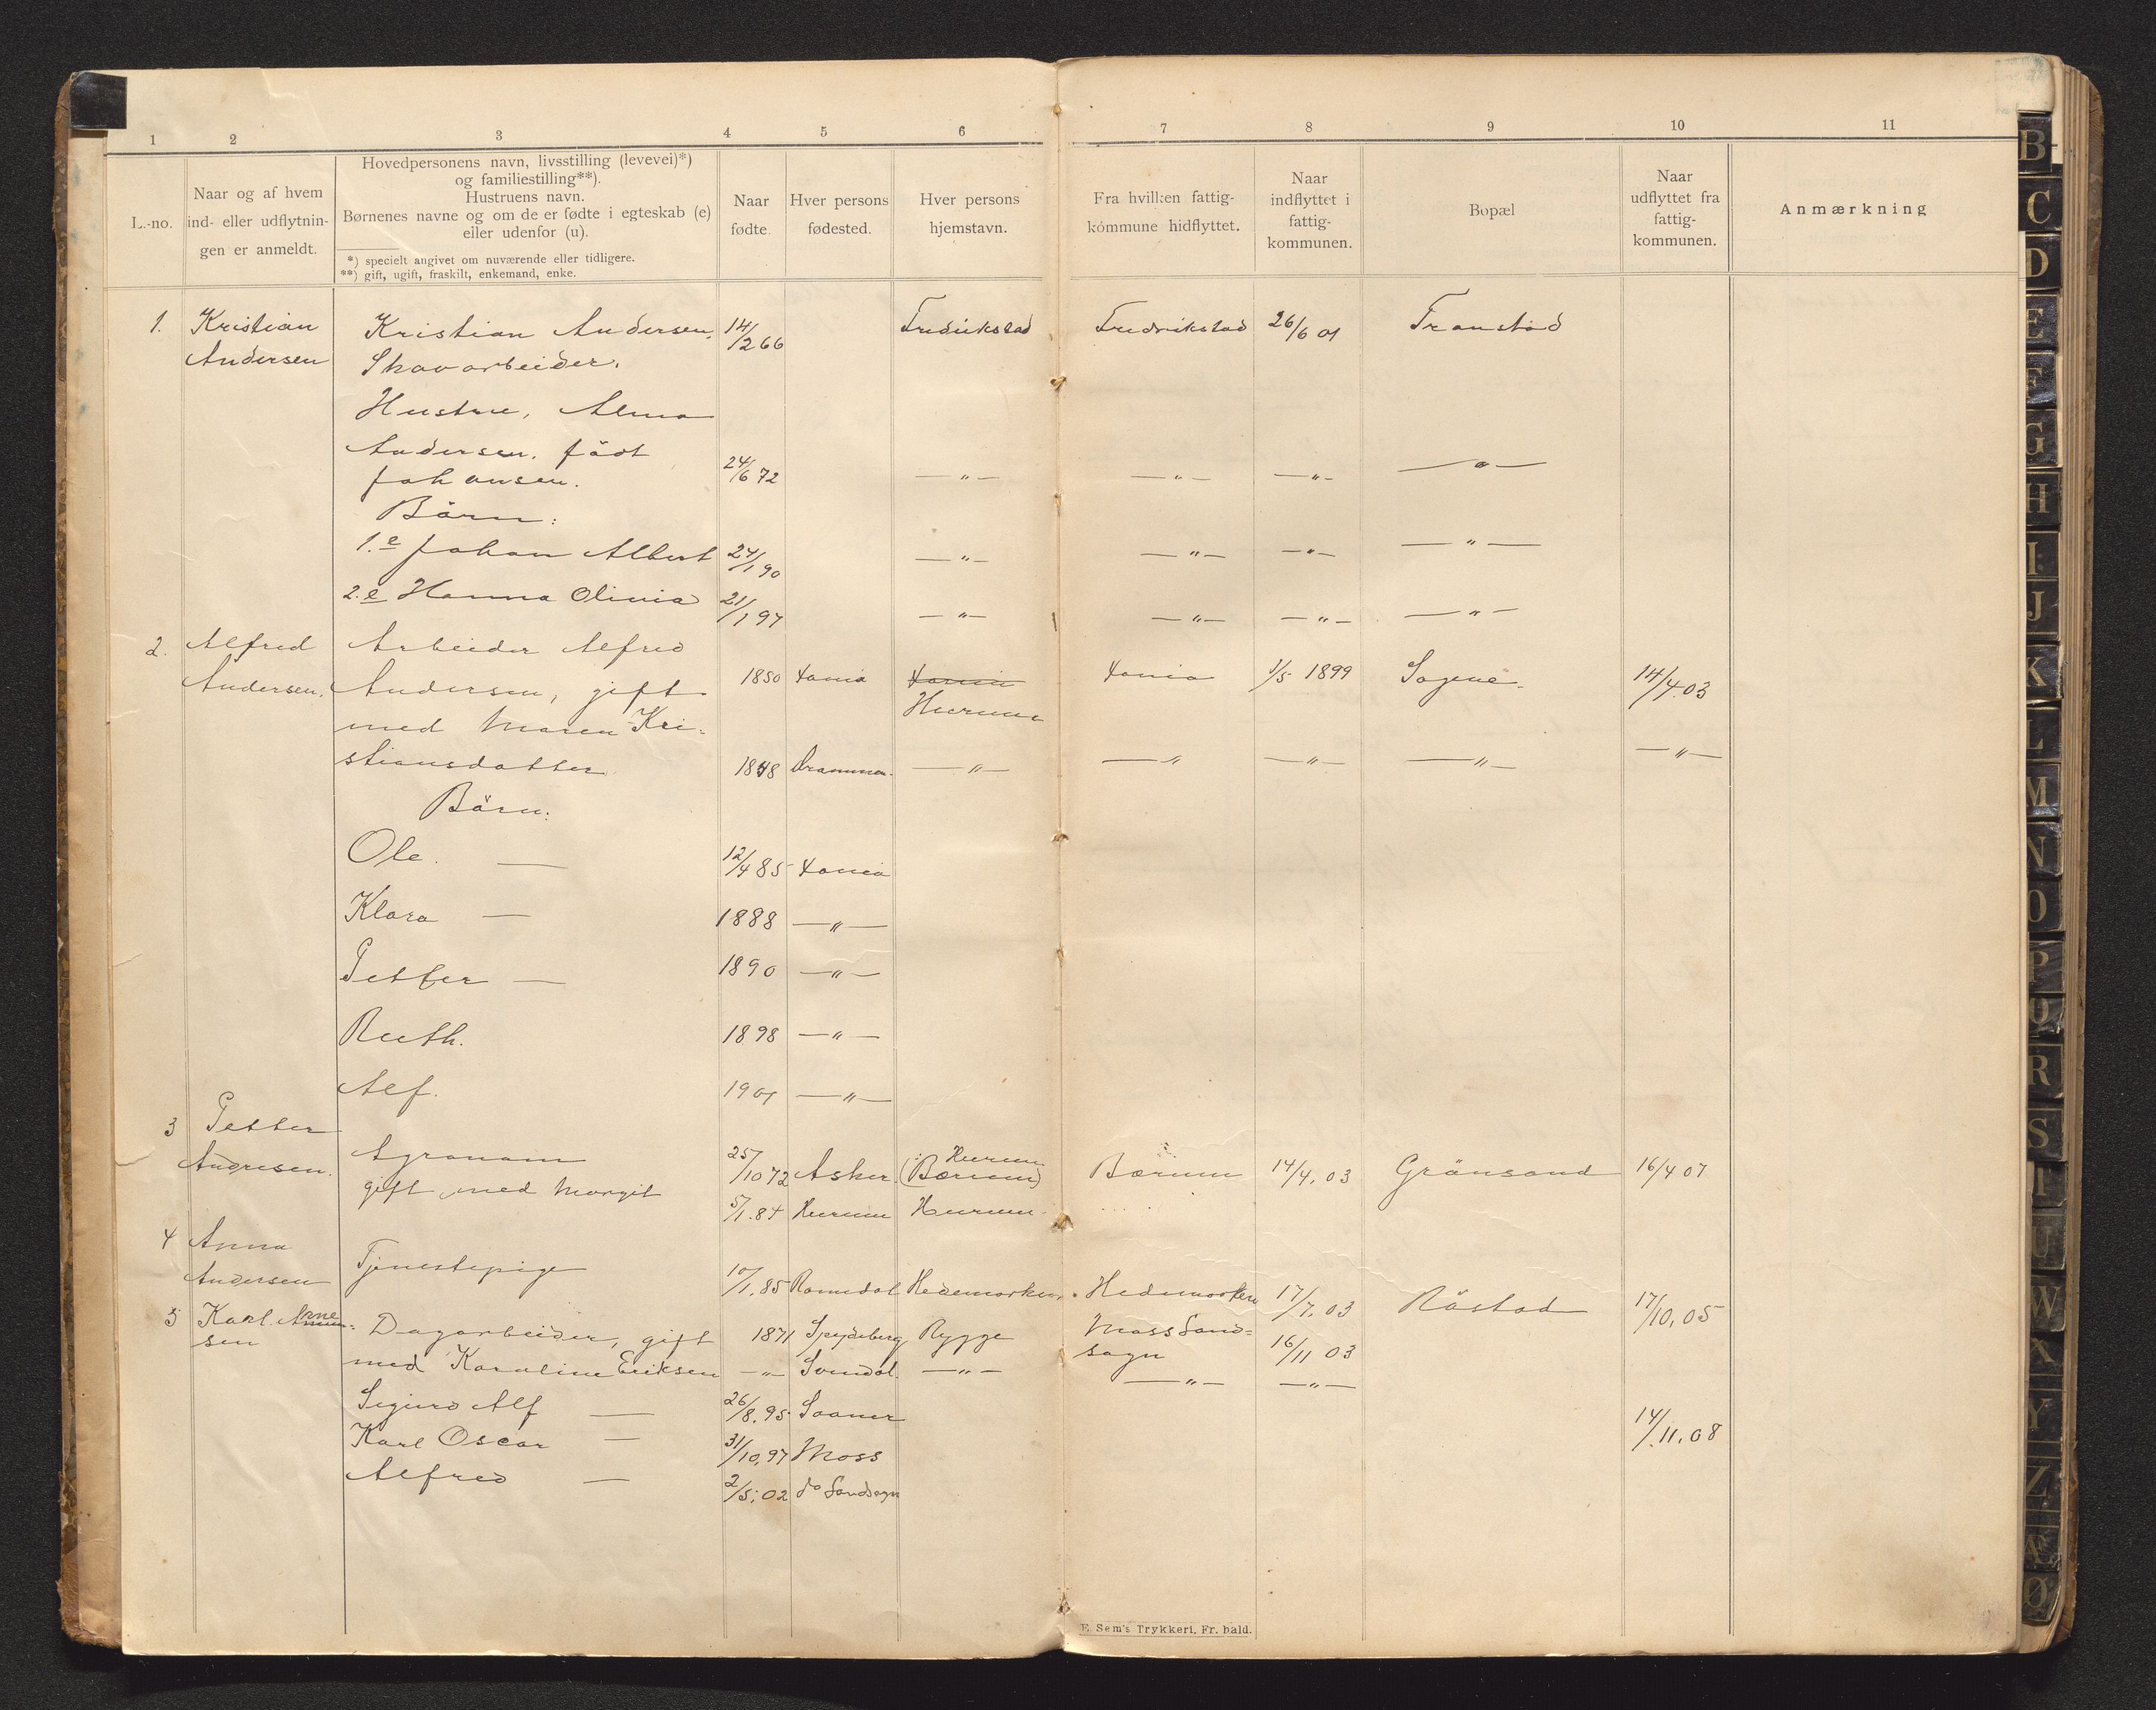 1 2 3 4 5 6 7 8 9 10 11
L.-no.
Naar og af hvem
ind- eller udflytnin-
gen er anmeldt.
Hovedpersonens navn, livsstilling (levevei)*)
og familiestilling**).
Hustruens navn.
Børnenes navne og om de er fødte i egteskab (e)
eller udenfor (u).
*) specielt angivet om nuværende eller tidligere.
**) gift, ugift, fraskilt, enkemand, enke.
Naar
fødte.
Hver persons
fødested.
Hver persons
hjemstavn.
Fra hvilken fattig-
kommune hidflyttet.
Naar
indflyttet i
fattig-
kommunen.
Bopæl
Naar
udflyttet fra
fattig-
kommunen.
Anmærkning
1. Kristian Kristian Andersen, 14/2 66 Fredrikstad Fredrikstad 26/6 01 Transtad
Andersen Skovarbeider.
Hustru, Alma
Andersen, födt
Johansen. 24/6 72 —"— —"— —"— —"—
Börn:
1.e Johan Albert 24/1 90 —"— —"— —"— —"—
2.e Hanna Olivia 21/1 97 —"— —"— —"— —"—
2. Alfred Arbeider Alfred
Andersen. Andersen, gift 1850 1/5 1899 Sagene. 14/4.03
Hurum
med Maren Kri-
stiansdatter 1848 Drammen. —"— —"— —"— —"— —"—
Börn:
Ole. — 12/4 85
Klara — 1888 —"—
Petter — 1890 —"—
Ruth. 1898 —"—
Alf. 1901 —"—
3 Petter
Andresen. Agronom 25/10 72 Asker. Hurum (Bærum) Bærum 14/4. 03 Grönsand 16/4 07
gift med Margit 5/1. 84 Hurum Hurum
4 Anna
Andersen Tjenestepige 10/1. 85 Romedal Hedemarken. Hedemarken 17/7. 03 Råstad 17/10. 05
5 Karl Arne-
sen Dagarbeider, gift 1871 Spydeberg Rygge Moss Land-
sogn 16/11 03
med Karoline Eriksen —"— Svindal. —"— —"— —"—
Sigurd Alf — 26/8. 95 Saaner
Karl Oscar — 31/10. 97 Moss 14/11. 08
Alfred — 2/5. 02 do Landsogn
E. Sem's Trykkeri, Fr. hald.
B
C
D
E
F
G
H
I
J
K
L
M
N
O
P
Q
R
S
T
U
W
X
Y
Z
Æ
Ø